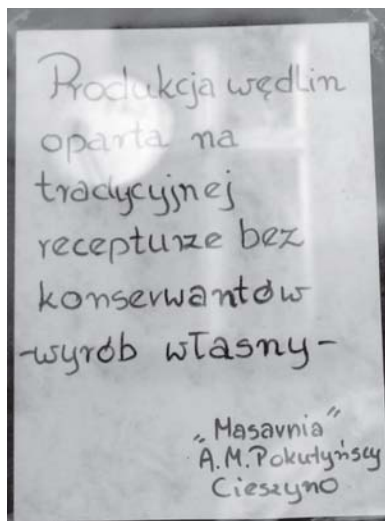 Produkcja wędlin
oparta na
tradycyjnej
recepturze bez
konserwantów
-wyrób własny-
„Masarnia"
A.M.Pokutyńscy
Cieszyno